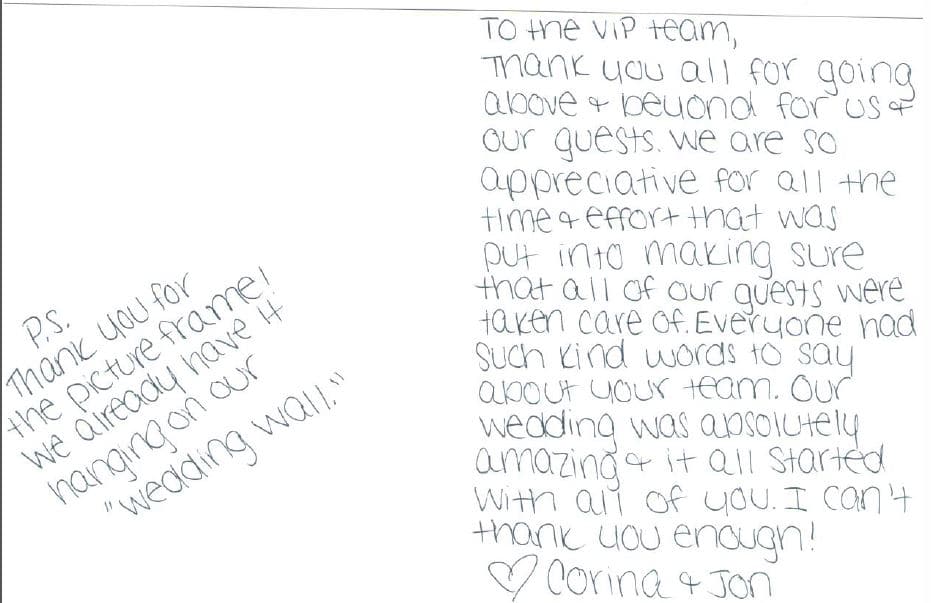 To the VIP team,
Thank you all for going
above & beyond for us &
our guests. We are so
appreciative for all the
time & effort that was
put into making sure
that all of our guests were
taken care of. Everyone had
such kind words to say
about your team. Our
wedding was absolutely
amazing & it all started
with all of you. I can't
thank you enough!
♡ Corina & Jon
P.S.
Thank you for
the picture frame!
We already have it
hanging on our
"wedding wall."